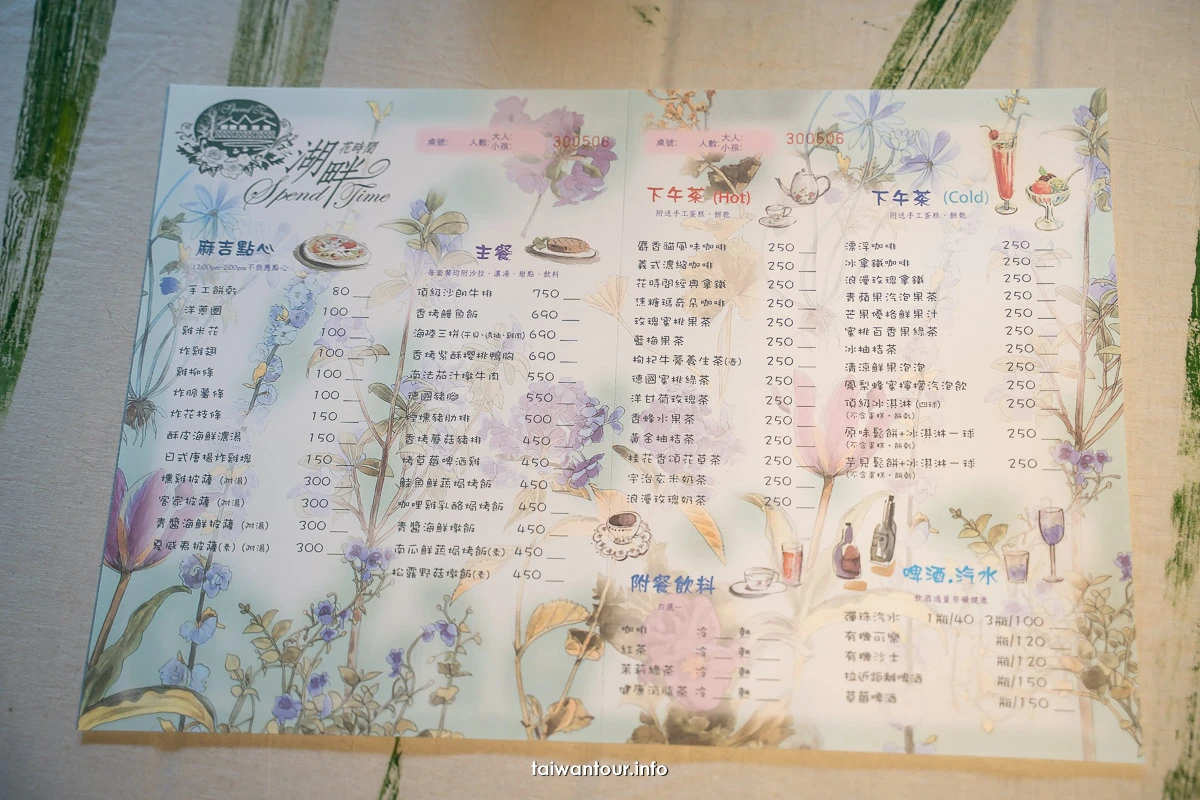 湖畔 花時間
Spend Time
桌號: 人數: 大人: 小孩: 300506
麻吉點心
手工餅乾 80
洋蔥圈 100
雞米花 100
炸雞翅 100
雞柳條 100
炸脆薯條 100
炸花枝條 150
酥皮海鮮濃湯 150
日式唐揚炸雞塊 150
燻雞披薩 (附湯) 300
客家披薩 (附湯) 300
青醬海鮮披薩 (附湯) 300
夏威夷披薩(素) (附湯) 300
主餐
每套餐均附沙拉、濃湯、甜點、飲料
頂級沙朗牛排 750
香烤鰻魚飯 690
海陸三拼 690
香烤紫酥櫻桃鴨胸 690
南法茄汁燉牛肉 550
德國豬腳 550
煙燻豬肋排 500
香烤蘑菇豬排 450
烤草莓啤酒雞 450
鮭魚鮮蔬焗烤飯 450
咖哩雞乳酪焗烤飯 450
青醬海鮮燉飯 450
南瓜鮮蔬焗烤飯(素) 450
松露野菇燉飯(素) 450
桌號: 人數: 大人: 小孩: 300506
下午茶 (Hot)
附送手工蛋糕、餅乾
麝香貓風味咖啡 250
義式濃縮咖啡 250
花時間經典拿鐵 250
焦糖瑪奇朵咖啡 250
玫瑰蜜桃果茶 250
藍梅果茶 250
枸杞牛蒡養生茶(壺) 250
德國蜜桃綠茶 250
洋甘菊玫瑰茶 250
香蜂水果茶 250
黃金柚桔茶 250
桂花香頌花草茶 250
宇治玄米奶茶 250
浪漫玫瑰奶茶 250
附餐飲料
四選一
咖啡 冷 熱
紅茶 冷 熱
茉莉綠茶 冷 熱
健康消脂茶 冷 熱
下午茶 (Cold)
附送手工蛋糕、餅乾
漂浮咖啡 250
冰拿鐵咖啡 250
浪漫玫瑰拿鐵 250
青蘋果汽泡果茶 250
芒果優格鮮果汁 250
蜜桃百香果綠茶 250
冰柚桔茶 250
清涼鮮果泡泡 250
鳳梨蜂蜜檸檬汽泡飲 250
頂級冰淇淋 (四球) 250
(不含蛋糕、餅乾)
原味鬆餅+冰淇淋一球 250
(不含蛋糕、餅乾)
芋見鬆餅+冰淇淋一球 250
(不含蛋糕、餅乾)
啤酒.汽水
飲酒過量有礙健康
彈珠汽水 1瓶/40 3瓶/100
有機可樂 瓶/120
有機沙士 瓶/120
拉近距離啤酒 瓶/150
草莓啤酒 瓶/150
taiwantour.info